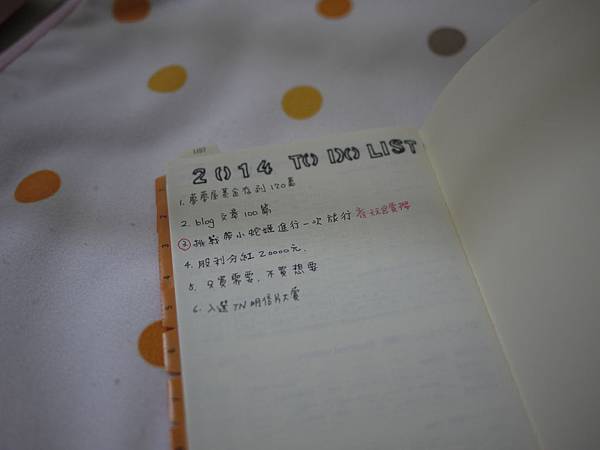 LIST
2014 TO DO LIST
1. 夢夢屋基金存到120萬
2. blog 文章100篇
③ 挑戰帶小蛇蛇進行一次旅行
4. 股利分紅20000元.
5. 只買需要, 不買想要
6. 入選TN明信片大賞